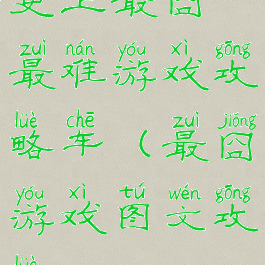 史上最囧
zuì nán yóu xì gōng
最难游戏攻
lüè chē zuì jiǒng
略车（最囧
yóu xì tú wén gōng
游戏图文攻
lüè